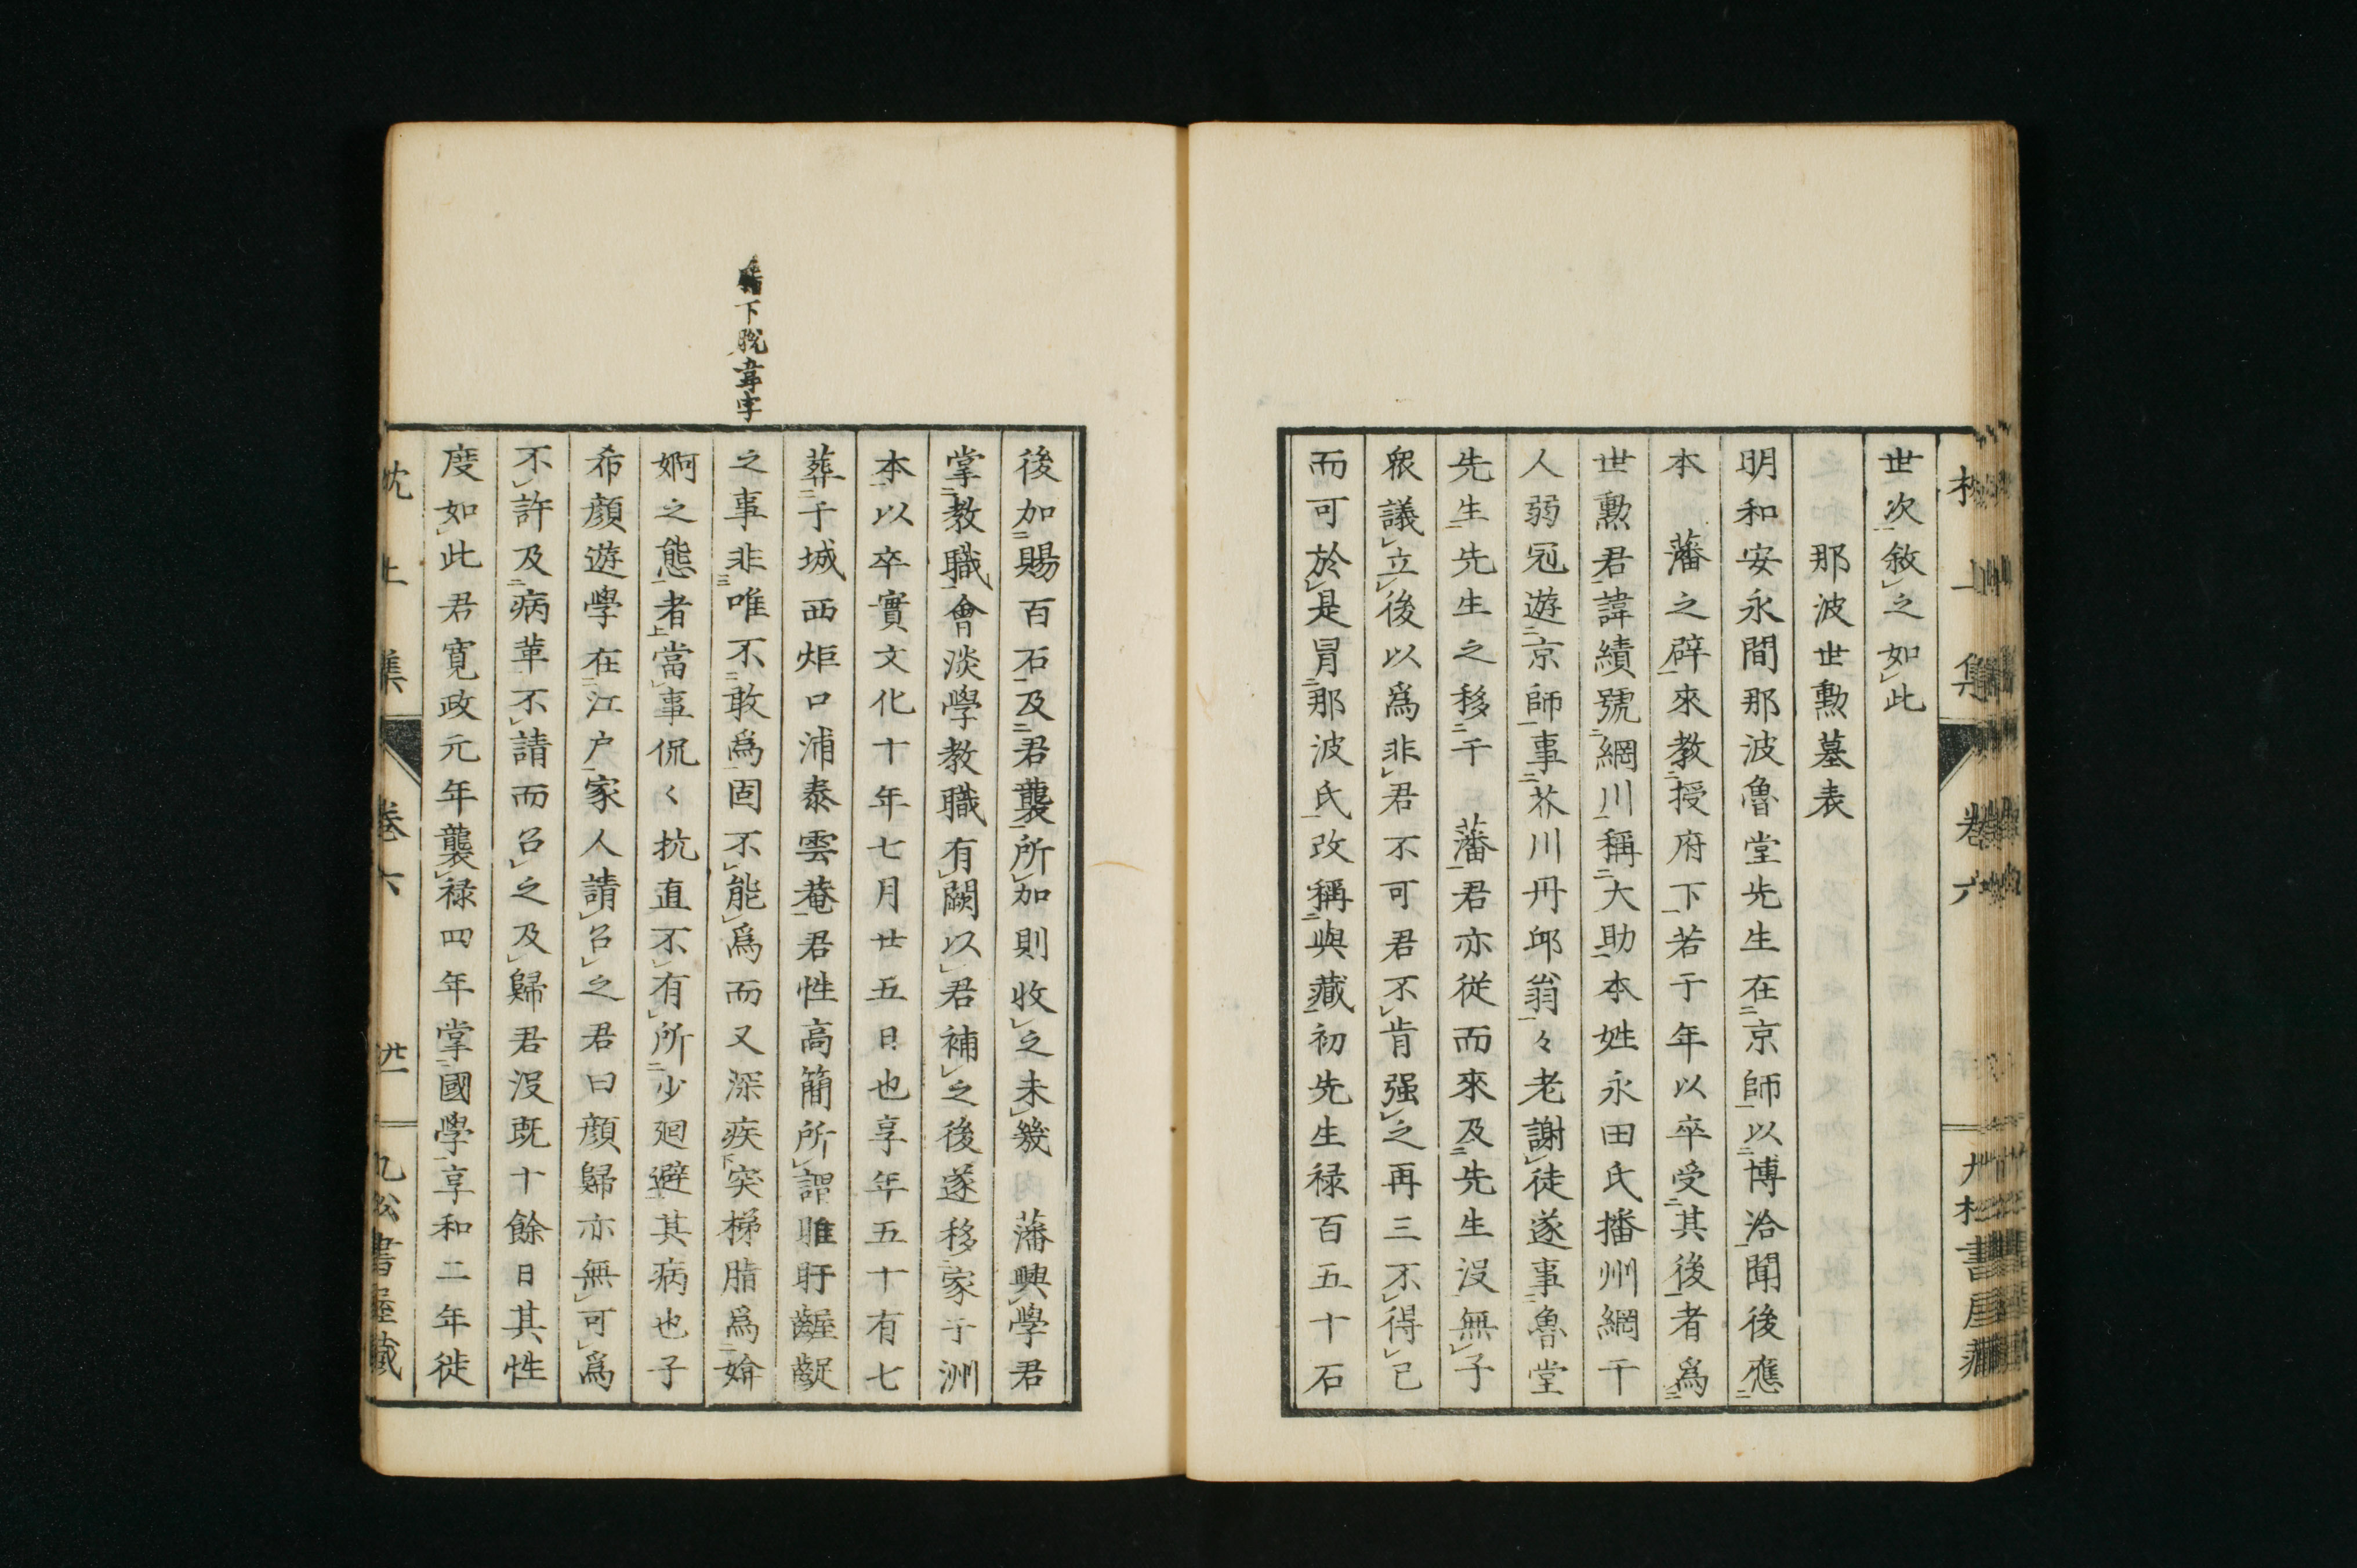 世次敘之如此
那波世勲墓表
明和安永間那波魯堂先生在京師以博洽聞後應
本 藩之辟來教授府下若干年以卒受其後者爲
世勲君諱績號綱川稱大助本姓永田氏播州網干
人弱冠遊京師事芥川丹邱翁々老謝徒遂事魯堂
先生先生之移于 藩君亦從而來及先生没無子
衆議立後以爲非君不可君不肯强之再三不得已
而可於是冐那波氏改稱與藏初先生禄百五十石
後加賜百石及君襲所加則收之未幾 藩興學君
掌教職會淡學教職有闕以君補之後遂移家于洲
本以卒實文化十年七月廿五日也享年五十有七
葬于城西炬口浦泰雲菴君性高簡所謂睢盱齷齪
之事非唯不敢爲固不能爲而又深疾突梯脂爲媕
婀之態者當事侃く抗直不有所少廻避其病也子
希顔遊學在江户家人請召之君曰顔歸亦無可爲
不許及病革不請而召之及歸君没既十餘日其性
度如此君寛政元年襲禄四年掌國學享和二年徙
下脱韋字
卷六
九松書屋藏